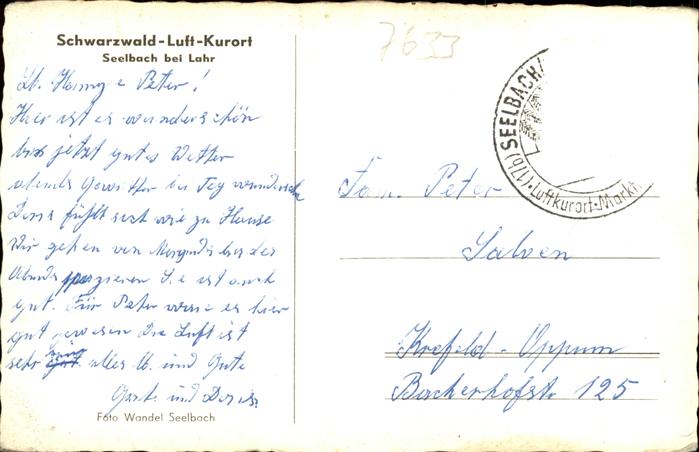 Schwarzwald-Luft-Kurort
Seelbach bei Lahr
Lb. Hanny u Peter!
Hier ist es wunderschön
bis jetzt gutes Wetter
abends Gewitter bei Tag wunderschön
Doris fühlt sich wie zu Hause
Wir gehen von Morgends bis des
Abends spazieren S.e ist auch
gut. Für Peter wäre es hier
gut gewesen Die Luft ist
sehr alles lb. und Gute
und Doris
Foto Wandel Seelbach
7633
(17b) SEELBACH/
Luftkurort-Markt
Fam. Peter
Salven
Krefeld-Oppum
Backerhofstr 125